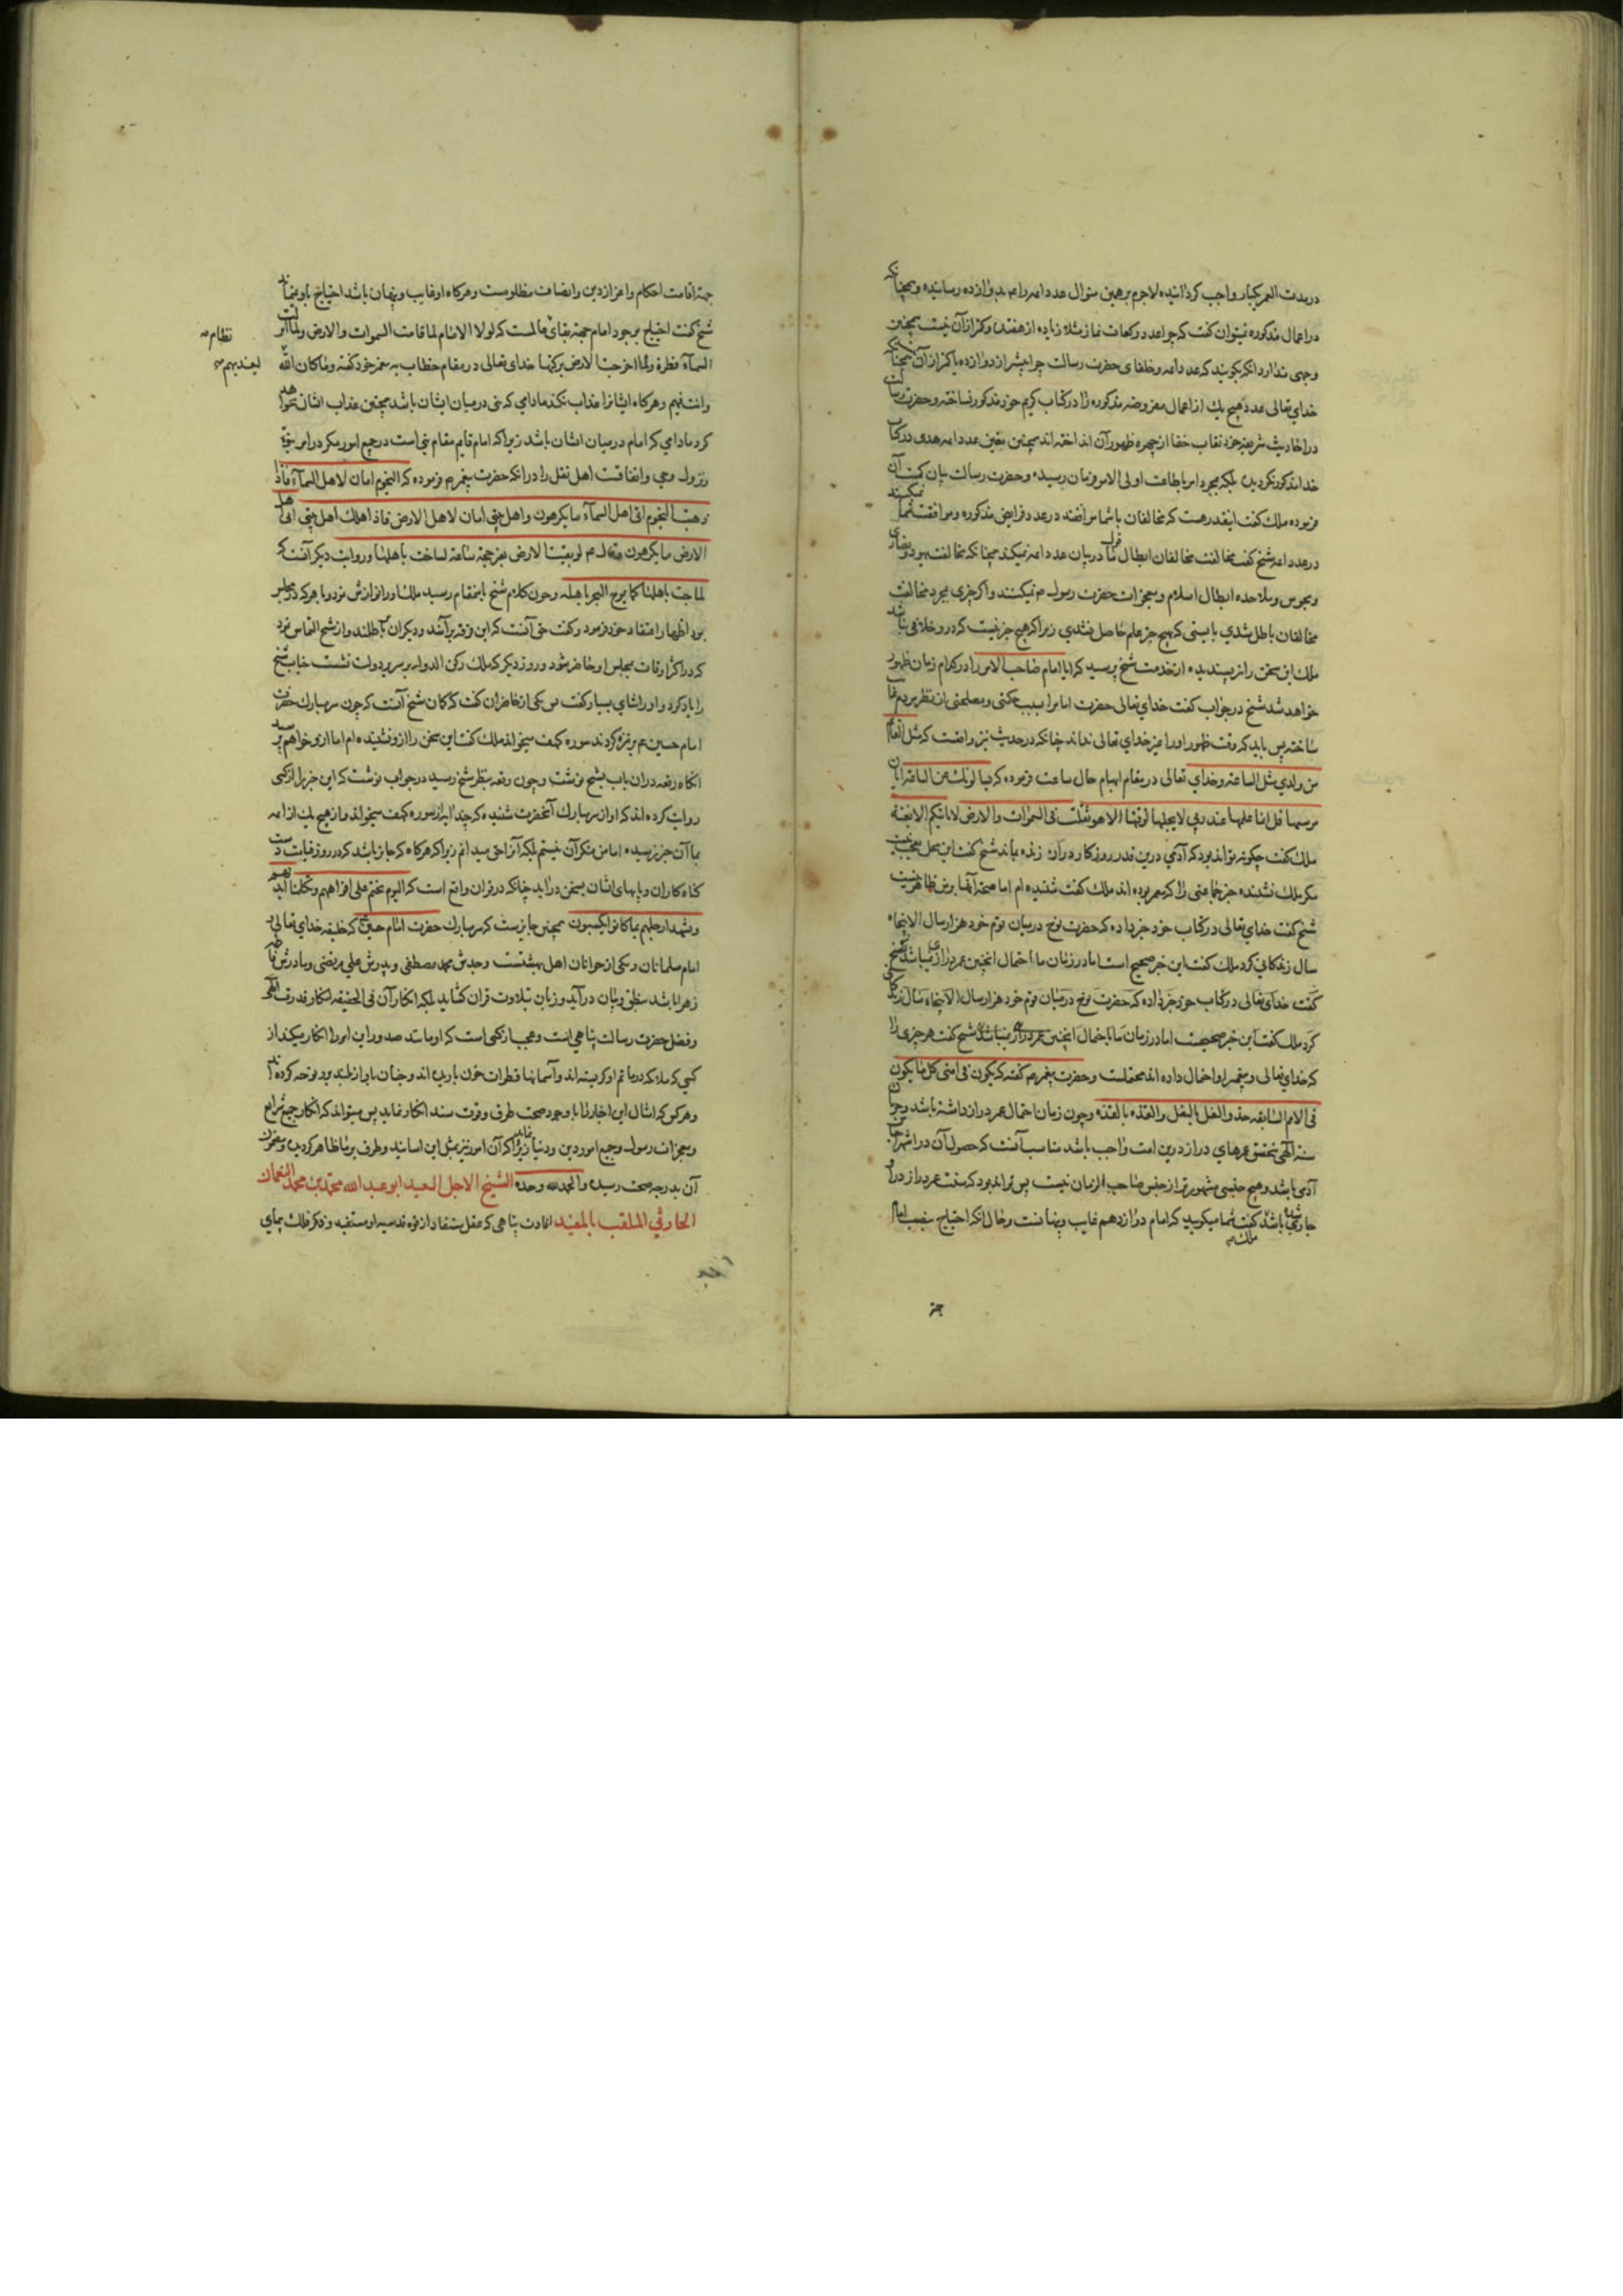 در مدت العمر یکبار واجب گردانیده لاجرم برهمین منوال عدد ائمه را بعدد دوازده رسانیده و همچنانکه
در اعمال مذکوره نمیتوان گفت که چرا عدد رکعات نماز مثلا زیاده از هفتده و کمتر از آن نیست همچنین
وجهی ندارد انکه بگویند که عدد ائمه و خلفای حضرت رسالت چرا بیشتر از دوازده یا کمتر از آن همچنانکه
خدای تعالی عدد هیچ یک از اعمال مفروضه مذکوره را در کتاب کریم خود مذکور نساخته و حضرت رسالت
در احادیث شریفه خود نقاب خفا از چهره ظهور آن انداخته اند همچنین تعین عدد ائمه هدی در کتاب
خدا مذکور نگردیده بلکه بمجرد امر باطاعت اولی الامر فرمان رسیده و حضرت رسالت بیان کمیت آن
فرموده ملک گفت اینقدر هست که مخالفان باشما موافقند در عدد فرایض مذکوره و موافقت شما نمیکنند
در عدد ائمه شیخ گفت مخالفت مخالفان ابطال قول ما در بیان عدد ائمه نمیکند همچنانکه مخالفت یهود و نصاری
و مجوس و ملاحده ابطال اسلام و معجزات حضرت رسول م نمیکنند و اگر چیزی بمجرد مخالفت
مخالفان باطل شدی بایستی که هیچ چیز علم حاصل نشدی زیرا که هیچ چیز نیست که در و خلافی نباشد
ملک این سخن را نیز پسندیده از خدمت شیخ پرسید که ایا امام صاحب الامر را در کدام زمان ظهور
خواهد شد شیخ در جواب گفت خدای تعالی حضرت امام را بسبب حکمتی و مصلحتی از نظر مردم غایب
ساخته پس باید که وقت ظهور او را غیر خدای تعالی نداند چنانکه در حدیث نیز واقعست که مثل القائم
من ولدی مثل الساعه و خدای تعالی در مقام ابهام حال ساعت فرموده که یسالونک عن الساعه ایان
مرسیها قل انما علمها عند ربی لا یجلیها لوقتها الا هو ثقلت فی السموات و الارض لا تاتیکم الا بغتة
ملک گفت چگونه تواند بود که آدمی درین قدر روزگار دراز زنده بماند شیخ گفت این محل تعجب نیست
مگر ملک نشنیده خبر جماعتی را که معمر بوده اند ملک گفت شنیده ام اما صحت آنها بر من ظاهر نیست
شیخ گفت خدای تعالی در کتاب خود خبر داده که حضرت نوح در میان قوم خود هزار سال الا پنجاه
سال زندگانی کرد ملک گفت این خبر صحیح است اما در زمان ما احتمال اینچنین عمر درازی نمیباشد شیخ
گفت خدای تعالی در کتاب خود خبر داده که حضرت نوح در میان قوم خود هزار سال الا پنجاه سال زندگانی
کرد ملک گفت این خبر صحیحست اما در زمان ما با احتمال اینچنین عمر درازی نمیباشد شیخ گفت هر چیزی را
که خدای تعالی و پیغمبر او احتمال داده اند محتملست و حضرت پیغمبر م گفته که یکون فی امتی کل ما یکون
فی الامم السابقه حذو النعل بالنعل و القذه بالقذه و چون زمان احتمال عمر دراز داشته باشد و جریان
سنة الهی بتحقق عمرهای دراز درین امت واجب باشد مناسب آنست که حصول آن در اشهر اجناس
آدمی باشد و هیچ جنسی مشهورتر از جنس صاحب الزمان نیست پس تواند بود که سنت عمر دراز در او
جاری شده باشد ملک گفت شما میگویید که امام دوازدهم غایب و پنهانست و حال انکه احتیاج بنصب امام
جهة
جهة اقامت احکام و اعزاز دین و انصاف مظلومست و هرگاه او غایب و پنهان باشد احتیاج باو نماند
شیخ گفت احتیاج بوجود امام جهة بقای عالمست که لولا الامام لما قامت السموات و الارض و لما انزلت
نظام
السمآء قطرة و لما اخرجت الارض برکتها خدای تعالی در مقام خطاب به پیغمبر خود گفته و ماکان الله
لیعذبهم
و انت فیهم و هرگاه ایشانرا عذاب نکند مادامی که نبی در میان ایشان باشد همچنین عذاب ایشان نخواهد
کرد مادامی که امام در میان ایشان باشد زیرا که امام قایم مقام نبی است در جمیع امور مگر در امر نبوة
و نزول وحی و اتفاقست اهل نقل را در انکه حضرت پیغمبر م فرموده که النجوم امان لاهل السمآء فاذا
ذهبت النجوم اتی اهل السمآء ما یکرهون و اهل بیتی امان لاهل الارض فاذا هلک اهل بیتی اتی اهل
الارض ما یکرهون و قال م لو بقیت الارض بغیر حجة ساعة لساخت باهلها و روایت دیگر آنست که
لماجت باهلها کما یموج البحر باهله و چون کلام شیخ باینمقام رسید ملک او را نوازش نمود و با هر که در مجلس
بود اظهار اعتقاد خود فرمود و گفت حق آنست که این فرقه برآنند و دیگران باطلند و از شیخ التماس نمود
که در اکثر اوقات بمجلس او حاضر شود و روز دیگر که ملک رکن الدوله بر سریر دولت نشست جناب شیخ
را یاد کرد و او را ثنای بسیار گفت پس یکی از حاضران گفت که گمان شیخ آنست که چون سر مبارک حضرت
امام حسین م بر نیزه کردند سوره کهف میخواند ملک گفت این سخن را از و نشنیده ام اما از و خواهم پرسید
انگاه رقعه دران باب بشیخ نوشت و چون رقعه بنظر شیخ رسید در جواب نوشت که این خبر را از کسی
روایت کرده اند که او از سر مبارک آنحضرت شنیده که چند ایه از سوره کهف میخواند و از هیچ یک از ائمه
بما آن خبر نرسیده اما من منکر آن نیستم بلکه آنرا حق میدانم زیرا که هرگاه که جایز باشد که در روز قیامت دست
گناه کاران و پایهای ایشان بسخن دراید چنانکه در قران واقع است که الیوم نختم علی افواههم و تکلمنا ایدیهم
و تشهد ارجلهم بما کانوا یکسبون همچنین جایزست که سر مبارک حضرت امام حسین که خلیفه خدای تعالی و
امام مسلمانان و یکی از جوانان اهل بهشتست و جدش محمد مصطفی و پدرش علی مرتضی و مادرش فاطمه
زهرا باشد بنطق و بیان درآید و زبان بتلاوت قران گشاید بلکه انکار آن فی الحقیقه انکار قدرت الهی
و فضل حضرت رسالت پناهی است و عجب از کسی است که او مانند صدور این امر را انکار میکند از
کسی که ملائکه در ماتم او گریسته اند و آسمانها قطرات خون باریده اند و جنیان باواز بلند برو نوحه کرده اند
و هر کس که امثال این اخبار را با وجود صحت طرق و قوت سند انکار نماید پس میتواند که انکار جمیع شرایع
و معجزات رسول و جمیع امور دین و دنیا نماید زیرا که آن امور نیز بمثل این اسانید و طرق بر ما ظاهر گردیده و مضمون
آن بدرجه صحت رسیده و الحمدلله وحده الشیخ الاجل السعید ابو عبد الله محمد بن محمد النعمان
الحارثی الملقب بالمفید افادت پناهی که عقل مستفاد از قوه قدسیه او مستفید و فکر فلک پیمای